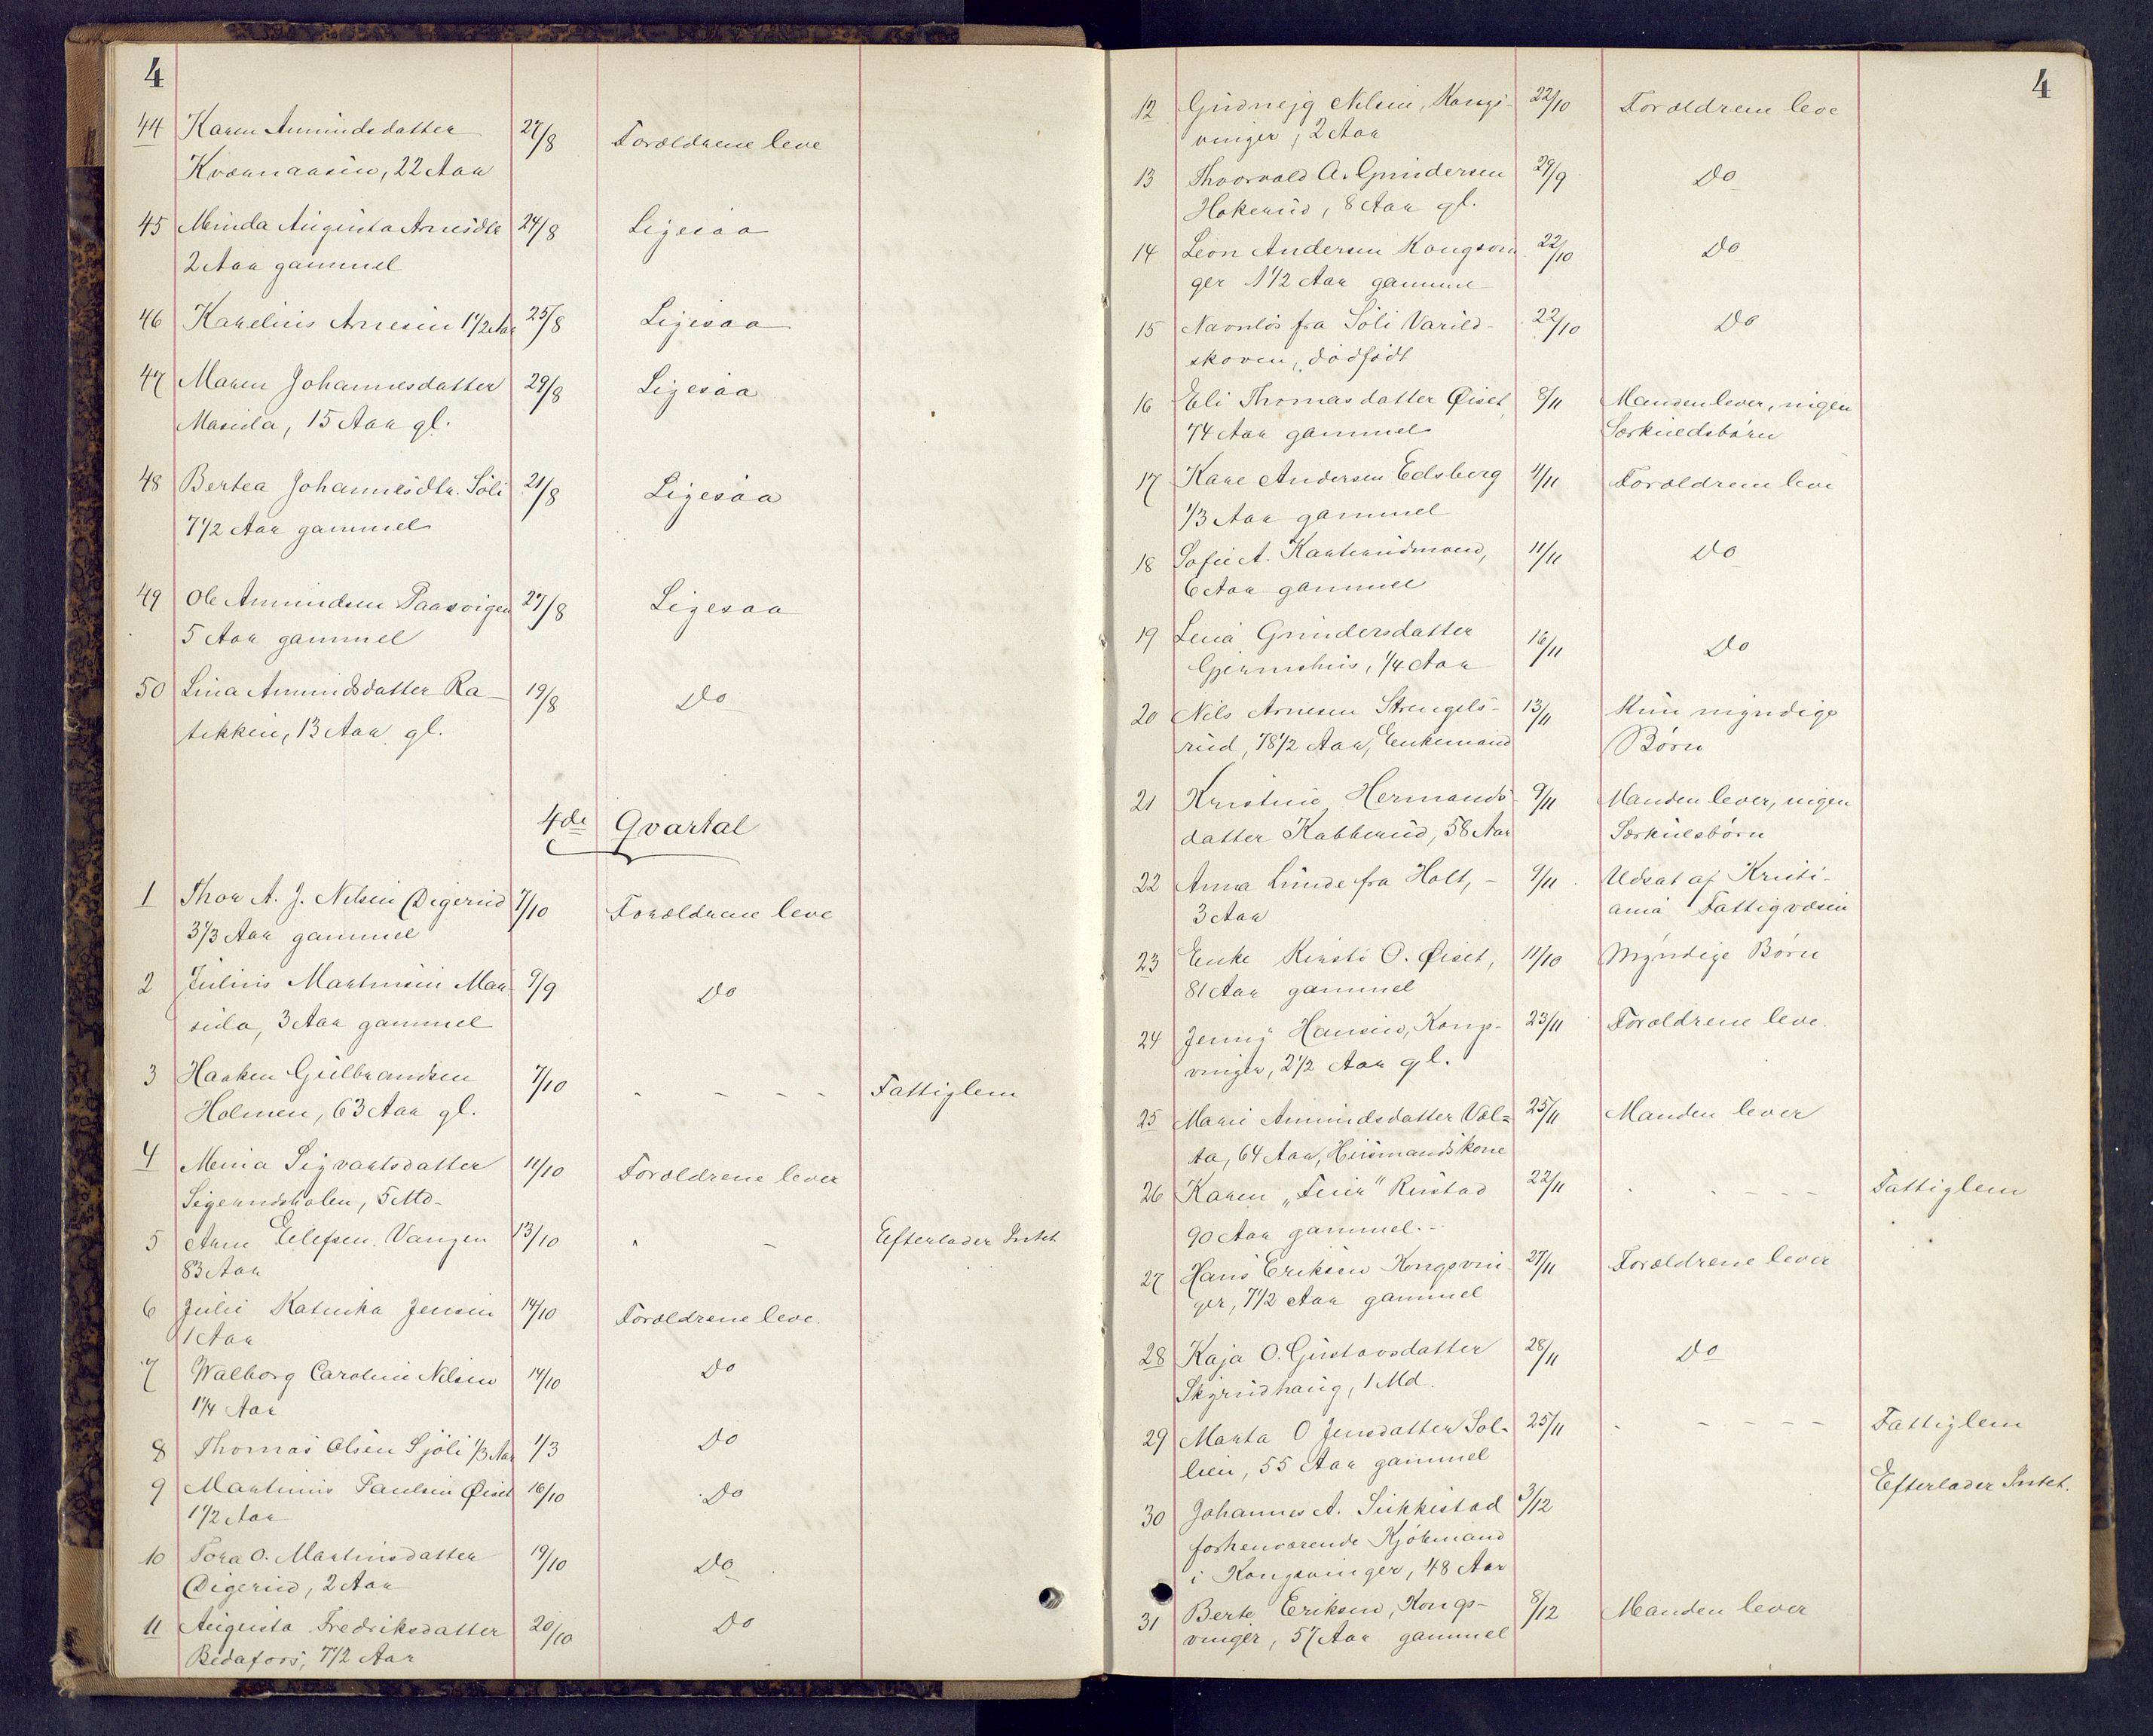 4
44 Karen Amundsdatter 27/8 Forældrene leve
Kværnaasen, 22 Aar
45 Minda Augusta Arnesdtr 24/8 Ligesaa
2 Aar gammel
46 Karelius Arnesen 1 1/2 Aar 25/8 Ligesaa
47 Maren Johannesdatter 29/8 Ligesaa
Masiula, 15 Aar gl.
48 Bertea Johannesdtr. Söli 21/8 Ligesaa
7 1/2 Aar gammel
49 Ole Amundsen Paasvigen 27/8 Ligesaa
5 Aar gammel
50 Lina Amundsdatter Ra- 19/8 Do
tikken, 13 Aar gl.
4de Qvartal
1 Thor A. J. Nilsen Digerud 7/10 Forældrene leve
3 1/3 Aar gammel
2 Julius Martinsen Mar 9/9 Do
siula, 3 Aar gammel
3 Haaken Gulbrandsen 7/10 - - - - Fattiglem
Holmen, 63 Aar gl.
4 Minia Sigvartsdatter 11/10 Forældrene lever
Sigerudsholen, 5 Md-
5 Arne Elefsen Vangen 13/10 " - Efterlader Intet
83 Aar
6 Julie Katinka Jensen 14/10 Forældrene leve.
1 Aar
7 Walborg Caroline Nilsen 14/10 Do
1 1/4 Aar
8 Thomas Olsen Sjöli 1/3 Aar 1/3 Do
9 Martinius Paulsen Øiset 16/10 Do
1 1/2 Aar
10 Tora O. Martinsdatter 19/10 Do
Digerud, 2 Aar
11 Augusta Fredriksdatter 20/10 Do
Bedafors, 7 1/2 Aar
4
12 Gudnejg Nilsen, Kongs- 22/10 Forældrene leve
vinger, 2 Aar
13 Thoorvald A. Gundersen 29/9 Do
Hokerud, 8 Aar gl.
14 Leon Andersen Kongsvin 22/10 Do
ger 1 1/2 Aar gammel
15 Navnlös fra Söli Varild- 22/10 Do
skoven, dödfödt
16 Eli Thomasdatter Øiset, 8/11 Manden lever, ingen
74 Aar gammel Særkuldsbörn
17 Kare Andersen Edsberg 1/11 Forældrene leve
1/3 Aar gammel
18 Sofie A. Karterudmoen, 11/11 Do
6 Aar gammel
19 Lena Gundersdatter 16/11 Do
Gjermshus, 1/4 Aar
20 Nils Arnesen Strengels- 13/11 Kun myndige
rud, 78 1/2 Aar, Enkemand Børn
21 Kristine Hermands- 9/11 Manden lever, ingen
datter Kabberud, 58 Aar Særkulsbörn
22 Anna Lunde fra Holt, - 9/11 Udsat af Kristi-
3 Aar ania Fattigvæsen
23 Enke Kirsti O. Øiset, 11/10 Myndige Börn
81 Aar gammel
24 Jenny Hansen, Kongs- 23/11 Forældrene leve.
vinger, 2 1/2 Aar gl.
25 Marie Amundsdatter Vol= 25/11 Manden lever
ta, 64 Aar, Husmandskone
26 Karen "Finn" Rustad 22/11 - - - - Fattiglem
90 Aar gammel. -
27 Hans Eriksen Kongsvin- 27/11 Forældrene lever
ger, 7 1/2 Aar gammel
28 Kaja O. Gustavsdatter 28/11 Do
Skyrudhaug, 1 Md.
29 Marta O Jensdatter Sol- 25/11 - - - - Fattiglem
lien, 55 Aar gammel
30 Johannes A. Sikkestad 3/12 Efterlader Intet.
forhenværende Kjöbmand
i Kongsvinger, 48 Aar
31 Berte Eriksen, Kongs- 8/12 Manden lever
vinger, 57 Aar gammel